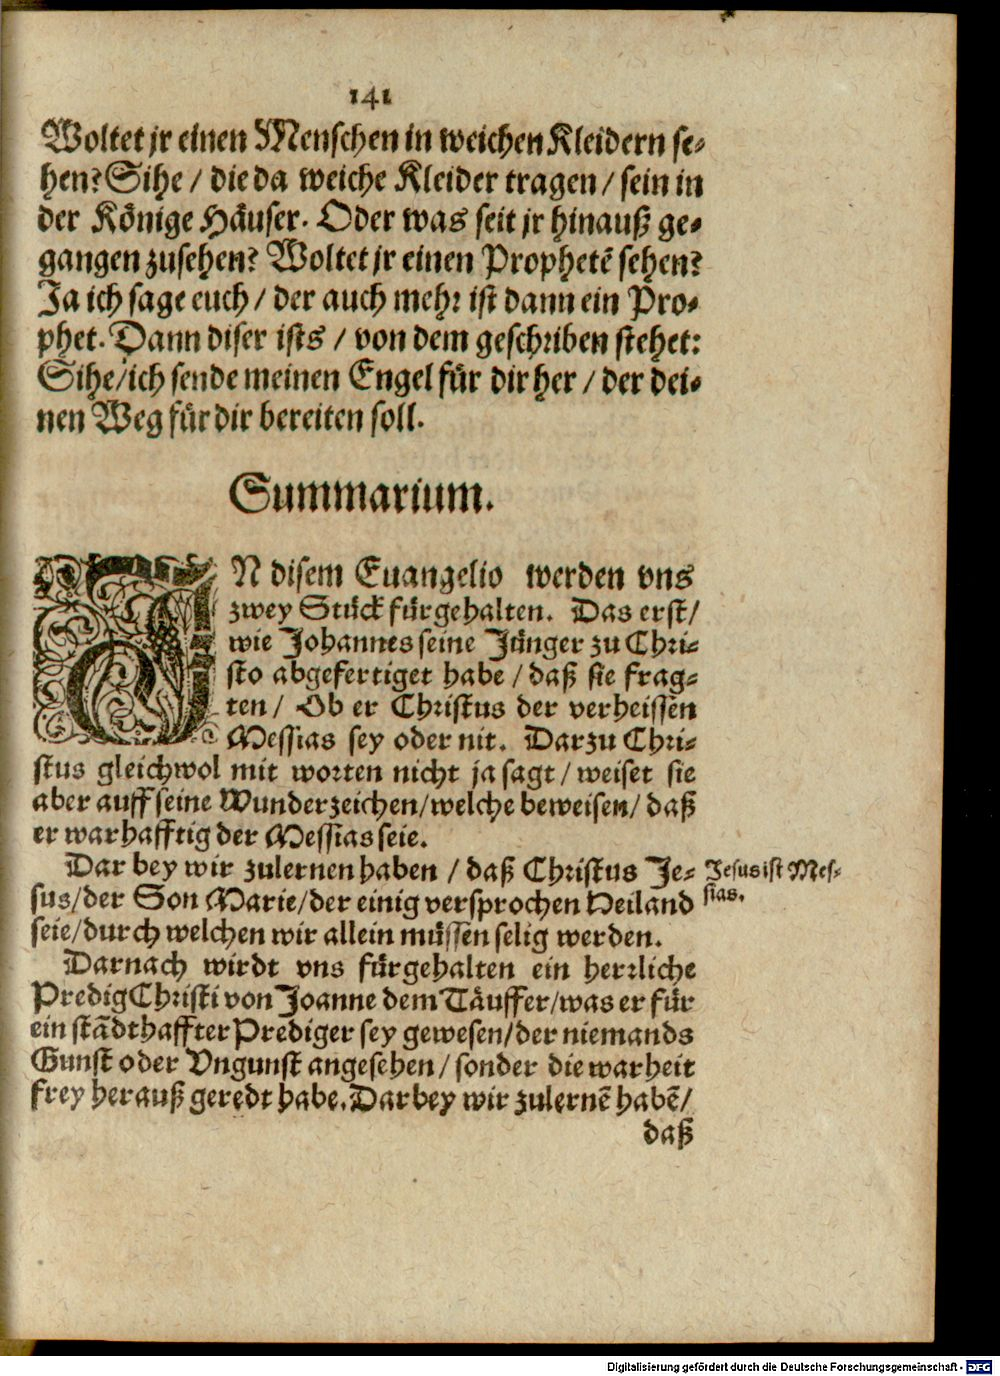 141
Woltet jr einen Menschen in weichen Kleidern se-
hen? Sihe / die da weiche Kleider tragen / sein in
der Könige Häuser. Oder was seit jr hinauß ge-
gangen zusehen? Woltet jr einen Prophetẽ sehen?
Ja ich sage euch / der auch mehr ist dann ein Pro-
phet. Dann diser ists / von dem geschriben stehet:
Sihe / ich sende meinen Engel für dir her / der dei-
nen Weg für dir bereiten soll.
Summarium.
IN disem Euangelio werden vns
zwey Stück fürgehalten. Das erst /
wie Johannes seine Jünger zu Chri-
sto abgefertiget habe / daß sie frag-
ten / Ob er Christus der verheissen
Messias sey oder nit. Darzu Chri-
stus gleichwol mit worten nicht ja sagt / weiset sie
aber auff seine Wunderzeichen / welche beweisen / daß
er warhafftig der Messias seie.
Dar bey wir zulernen haben / daß Christus Je-
sus / der Son Marie / der einig versprochen Heiland
seie / durch welchen wir allein müssen selig werden.
Jesus ist Mes-
sias.
Darnach wirdt vns fürgehalten ein herrliche
Predig Christi von Joanne dem Täuffer / was er für
ein stãdthaffter Prediger sey gewesen / der niemands
Gunst oder Vngunst angesehen / sonder die warheit
frey herauß geredt habe. Darbey wir zulernẽ habẽ /
daß
Digitalisierung gefördert durch die Deutsche Forschungsgemeinschaft - DFG